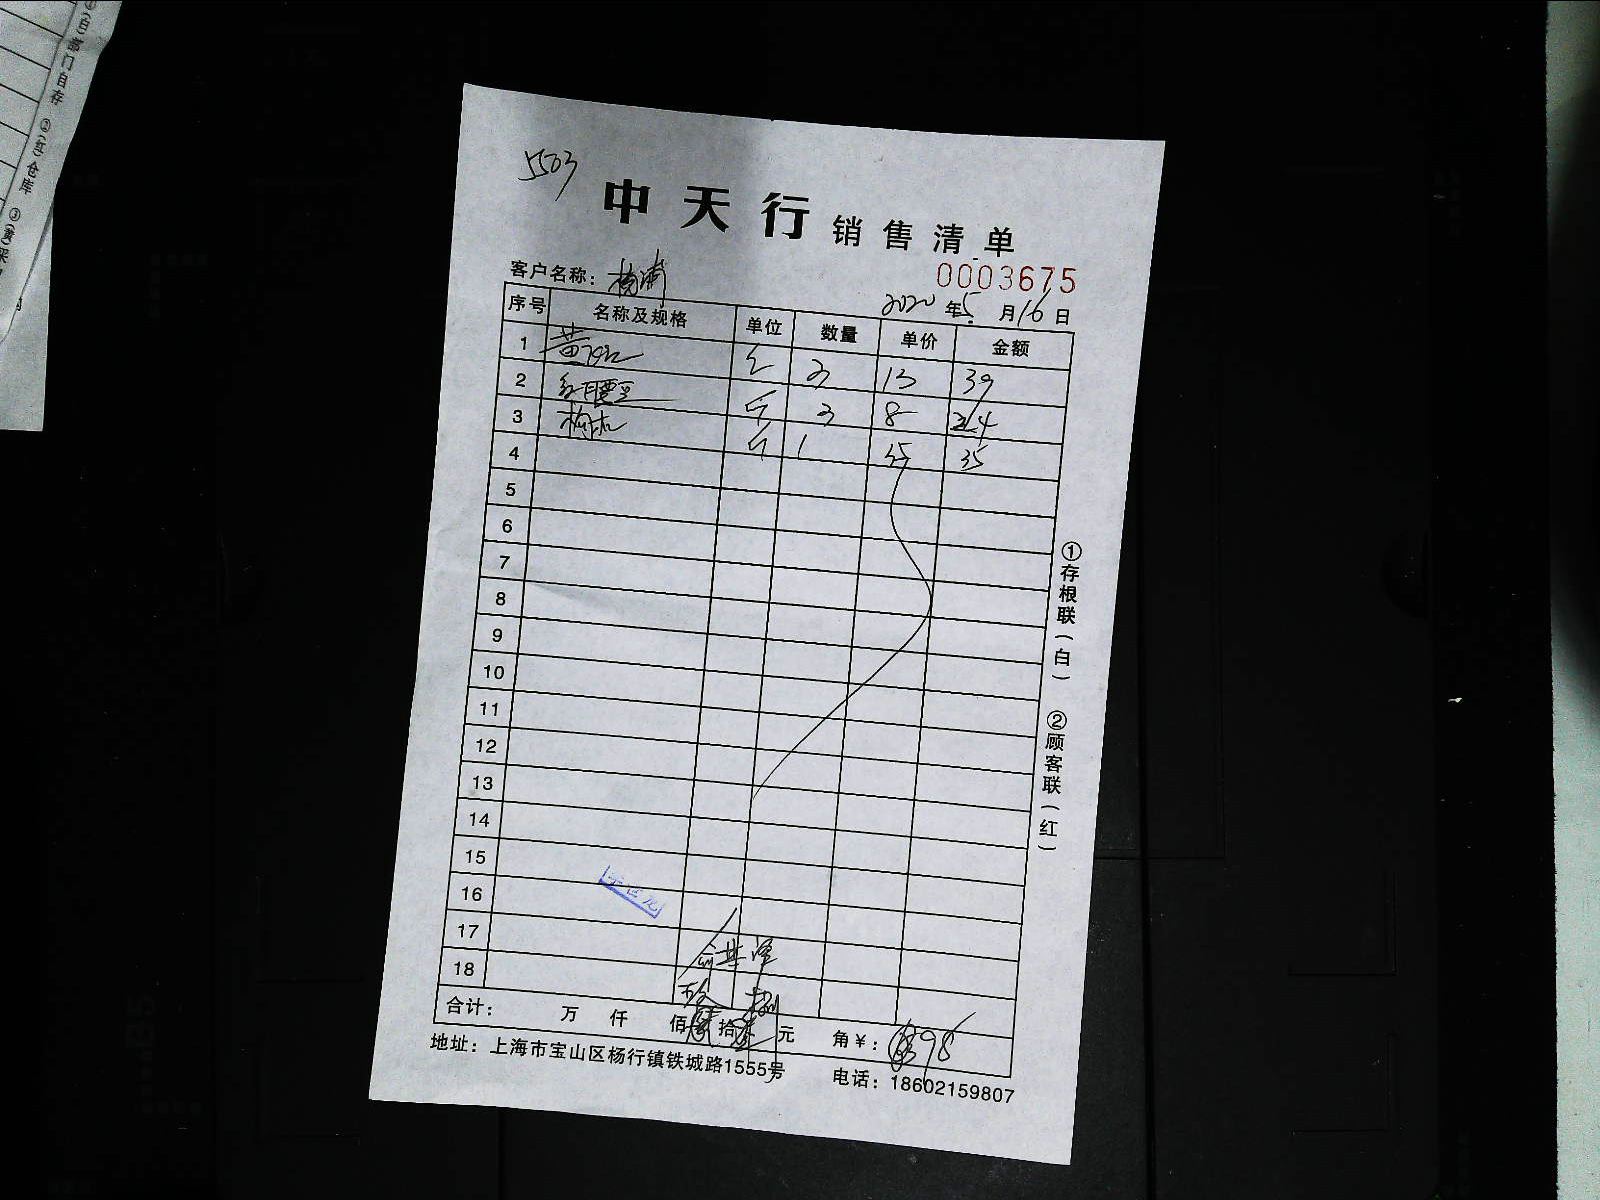 (色)部门自存 ②(红)仓库 ③(黄)采
5503
中天行 销售清单
0003675
客户名称: 杨浦
2020 年 5 月 16 日
序号 名称及规格 单位 数量 单价 金额
1 3 13 39
2 红腰豆 斤 3 8 24
3 斤 1 35 35
4
5
6
7
8
9
10
11
12
13
14
15
16
17
18
合计: 万 仟 佰 拾 元 角 ¥: 98
地址: 上海市宝山区杨行镇铁城路1555号 电话: 18602159807
①存根联(白) ②顾客联(红)